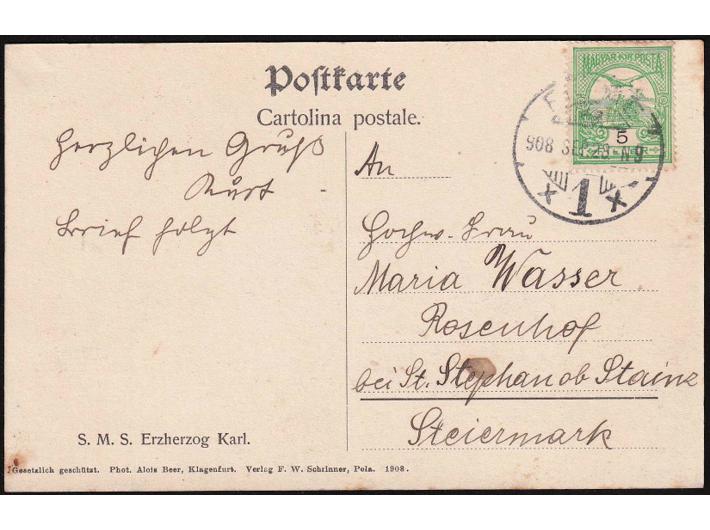 Postkarte
Cartolina postale.
MAGYAR KIR. POSTA
5
908 SEP. 23. N9
* 1 *
Herzlichen Gruß
Kurt
Brief folgt
An
Hochw. Frau
Maria Wasser
Rosenhof
bei St. Stephan ob Stainz
Steiermark
S. M. S. Erzherzog Karl.
Gesetzlich geschützt. Phot. Alois Beer, Klagenfurt. Verlag F. W. Schrinner, Pola. 1908.